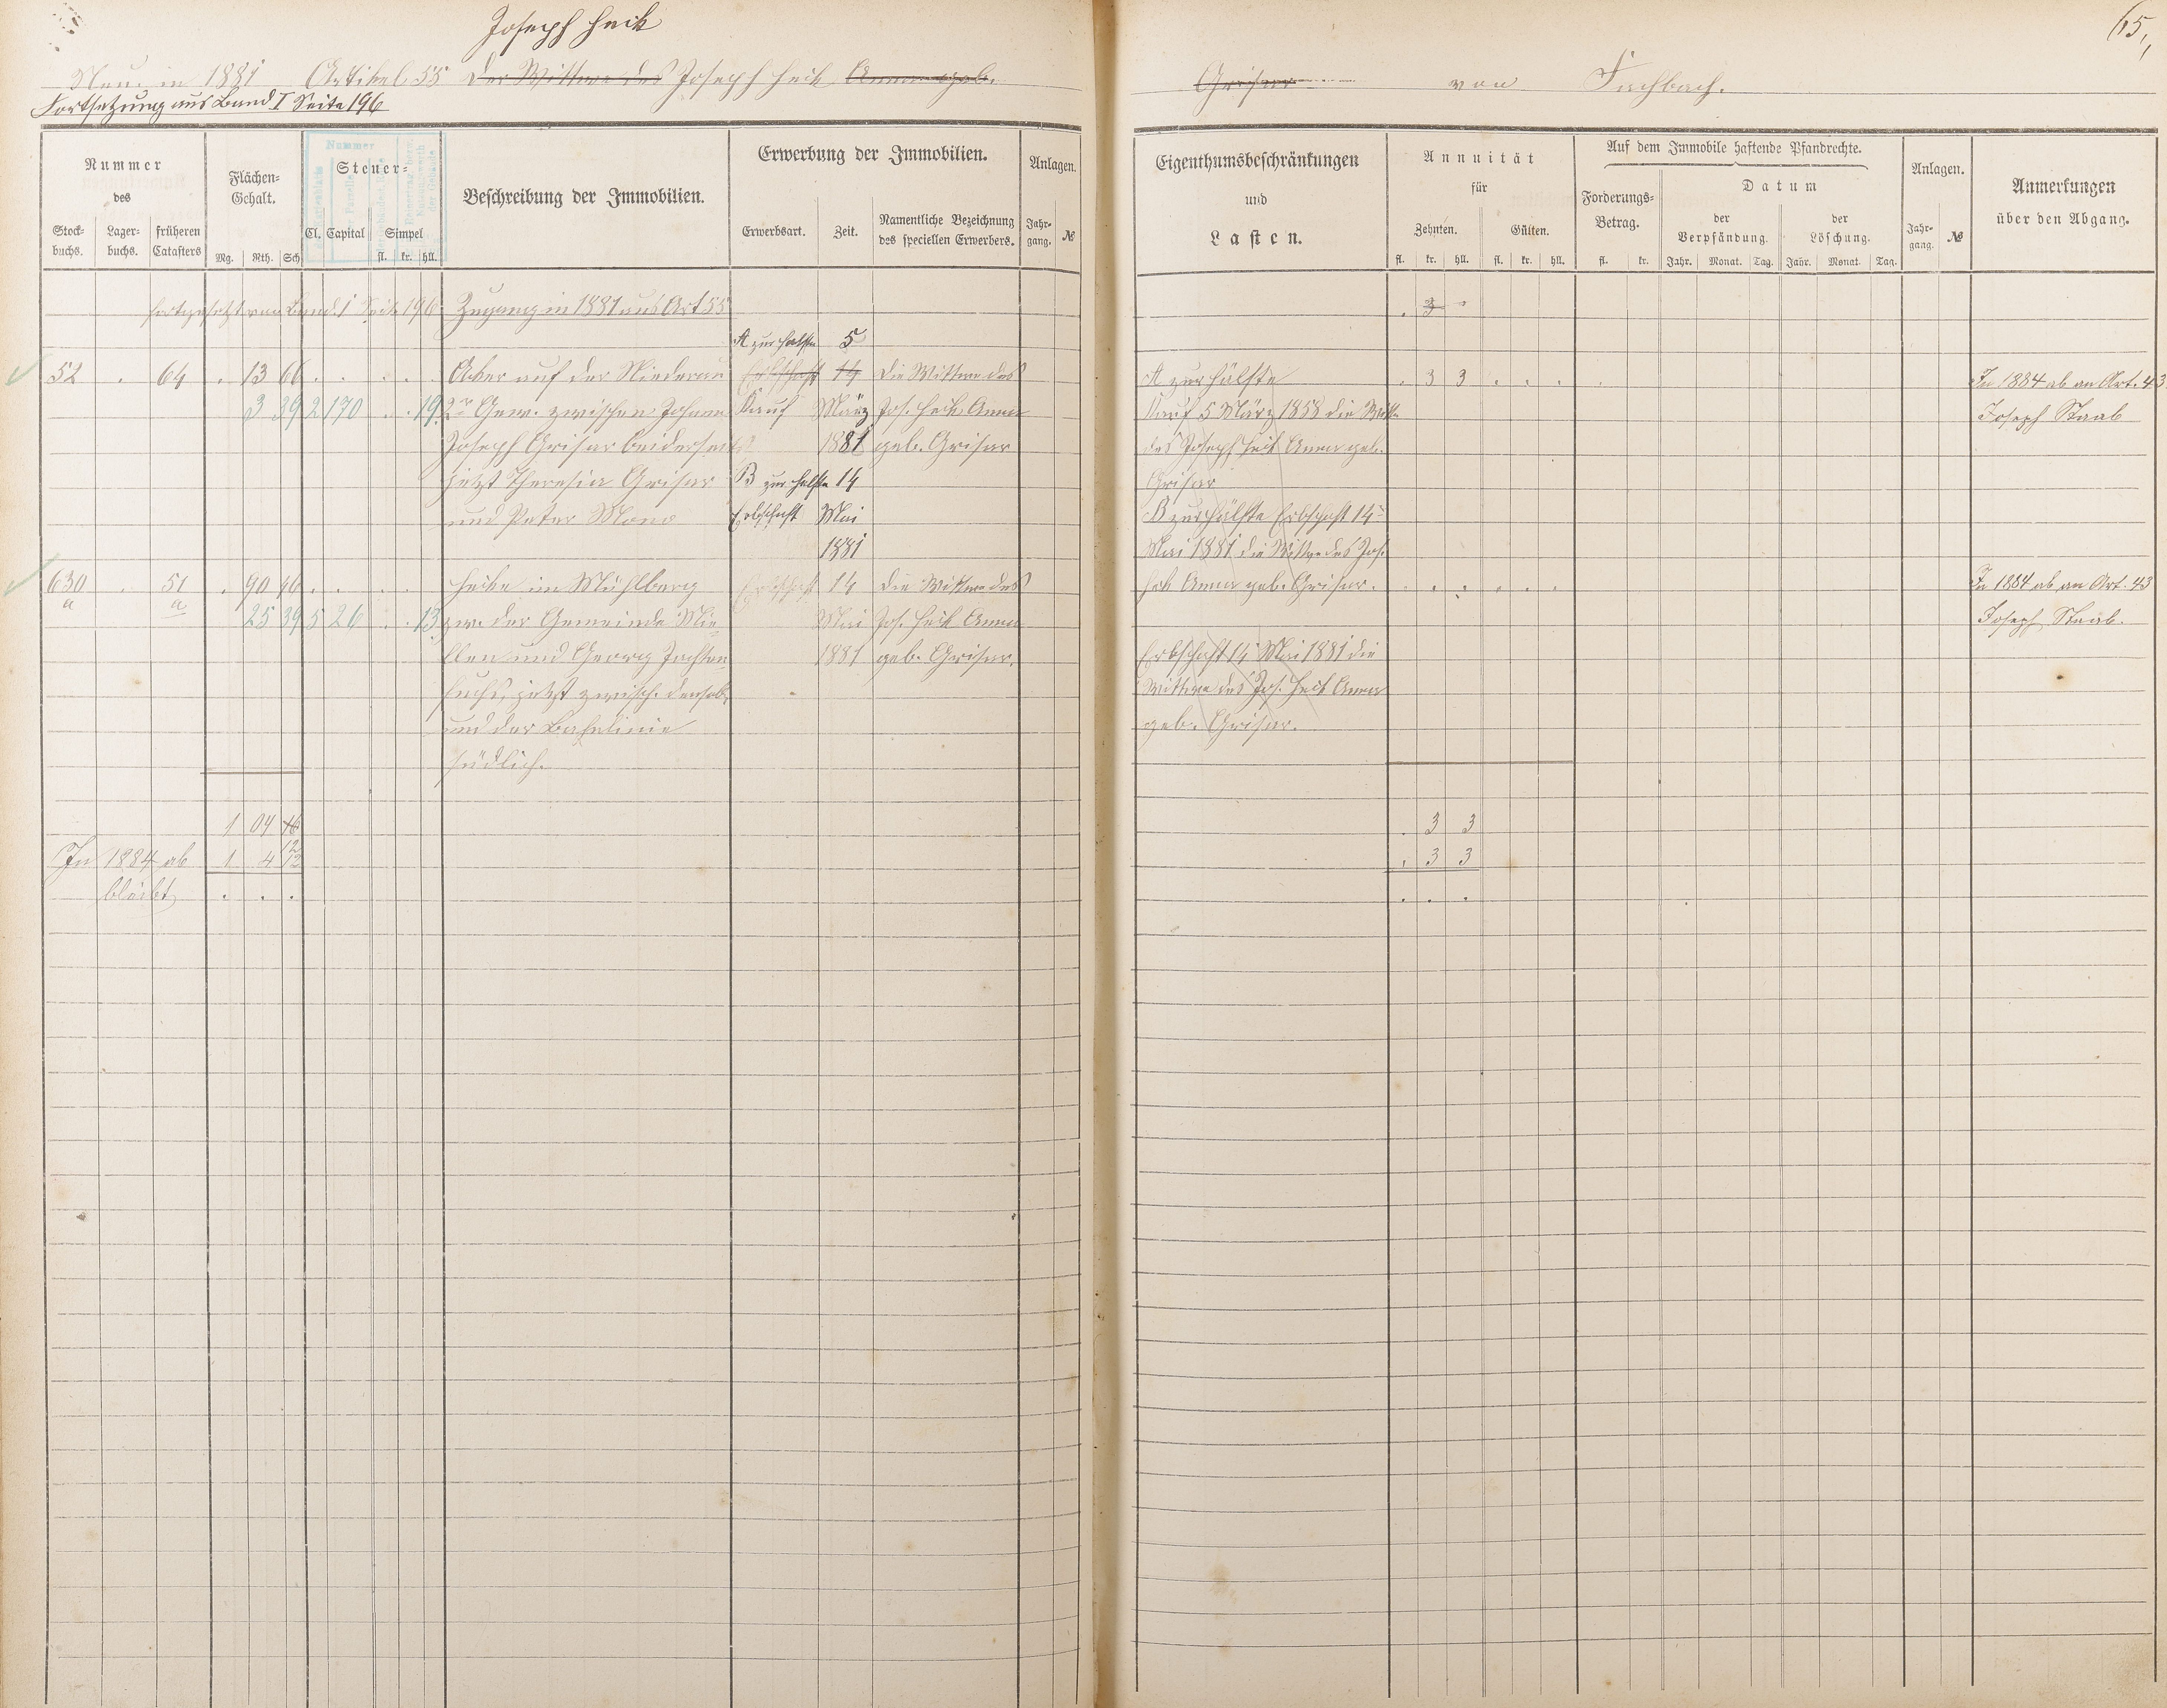 Joseph Heck
65,
Neu in 1881 Artikel 55 Der Wittwe des Joseph Heck Anna geb. Grisar von Fachbach.
Fortsetzung aus Band I Seite 196
Nummer des
Stock-buchs. Lager-buchs. früheren Catasters
Flächen-Gehalt.
Mg. Rth. Sch
Nummer
Steuer-
Cl. Capital Simpel
fl. kr. hll.
Beschreibung der Immobilien.
Erwerbung der Immobilien.
Erwerbsart. Zeit. Namentliche Bezeichnung des speciellen Erwerbers.
Anlagen.
Jahr-gang. №
Eigenthumsbeschränkungen und Lasten.
Annuität für
Zehnten. Gülten.
fl. kr. hll. fl. kr. hll.
Auf dem Immobile haftende Pfandrechte.
Forderungs-Betrag.
fl. kr.
Datum
der Verpfändung. der Löschung.
Jahr. Monat. Tag. Jahr. Monat. Tag.
Anlagen.
Jahr-gang. №
Anmerkungen über den Abgang.
fortgesetzt von Band 1 Seite 196 Zugang in 1881 aus Art 55
A zur Hälfte 5
52 . 64 . 13 66 . . . . . Acker auf der Niederau Erbschaft 14 Die Wittwe des
3 39 2 170 . . 19 2r Gew. zwischen Johann Kauf März Jos. Heck Anna
Joseph Grisar beiderseits 1881 geb. Grisar
jetzt Theresia Grisar B zur Hälfte 14
und Peter Erbschaft Mai
1881
630 a . 51 a . 90 46 . . . . . Hecke im Mühlberg Erbschaft 14 Die Wittwe des
25 39 5 26 . . 13 zw. der Gemeinde Mie- Mai Jos. Heck Anna
llen und Georg 1881 geb. Grisar.
fuchs, jetzt zwisch. denselb.
und der Bahnlinie
südlich.
1 04 16
In 1884 ab 1 4 12
bleibt . . .
. 3
A zur Hälfte . 3 3 . . . . In 1884 ab an Art. 43
Kauf 5 März 1858 die Wittwe Joseph Staab
des Joseph Heck Anna geb.
Grisar
B zur Hälfte Erbschaft 14
Mai 1881 die Wittwe des Jos.
Heck Anna geb. Grisar. . . . . . . In 1884 ab an Art. 43
Joseph Staab.
Erbschaft 14 Mai 1881 die
Wittwe des Jos. Heck Anna
geb. Grisar.
. 3 3
. 3 3
. . .